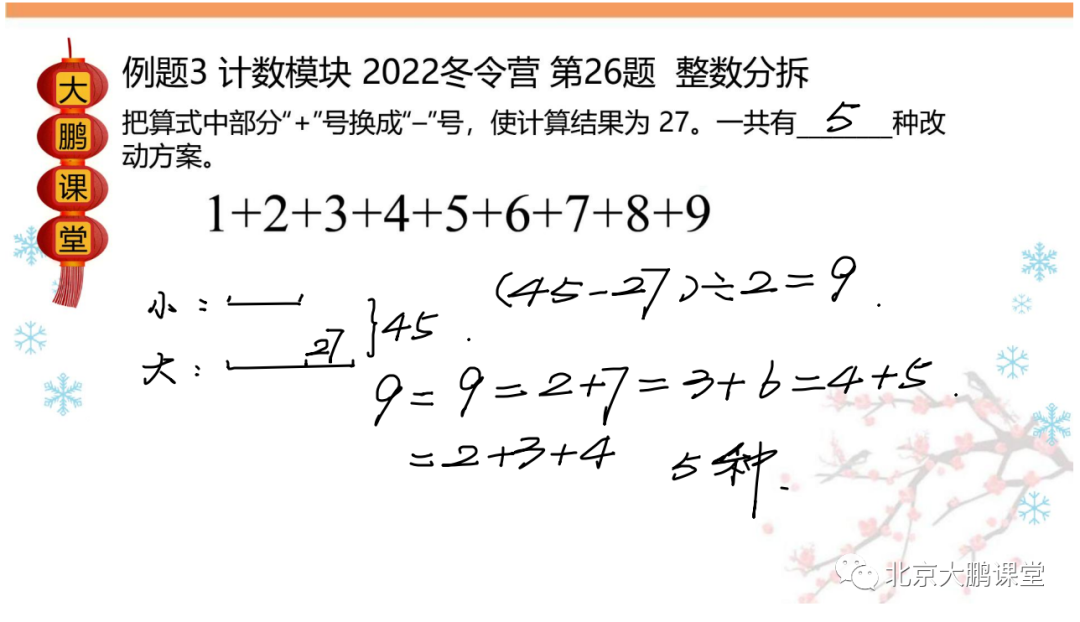 大鹏课堂
例题3 计数模块 2022冬令营 第26题 整数分拆
把算式中部分“+”号换成“−”号，使计算结果为 27。一共有 5 种改
动方案。
1+2+3+4+5+6+7+8+9
小：
(45-27)÷2=9.
}45.
27
大：
9=9=2+7=3+6=4+5.
=2+3+4 5种.
北京大鹏课堂